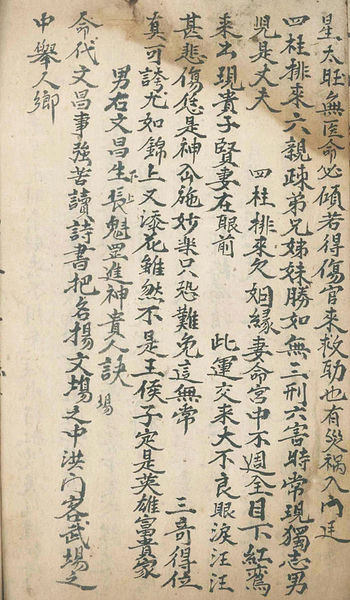 星太旺無医命必傾若得傷官來救助也有災禍入門廷
四柱排來六親疎弟兄姊妹勝如無三刑六害時常現獨志男
児是丈夫　四柱排來欠姻縁妻命宮中不週全目下紅鸞
來出現貴子賢妻在眼前　此運交来大不良眼淚汪汪
甚悲傷總是神仙施妙藥只恐難免這無常　三奇得位
真可誇尤如錦上又添花雖然不是王侯子定是英雄富貴家
男右文昌生長魁罡進神貴人訣
下上
命代文昌事強苦讀詩書把名揚文場之中洪門客武場之
場
中舉人鄉